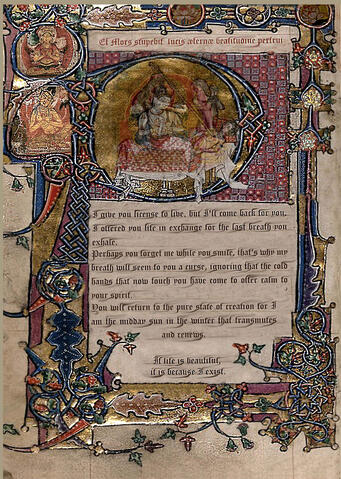 Et Mors stupebit lucis æternæ beatitudine perfrui
I give you license to live, but I'll come back for you.
I offered you life in exchange for the last breath you
exhale.
Perhaps you forget me while you smile, that's why my
breath will seem to you a curse, ignoring that the cold
hands that now touch you have come to offer calm to
your spirit.
You will return to the pure state of creation for I
am the midday sun in the winter that transmutes
and renews.
If life is beautiful,
it is because I exist.